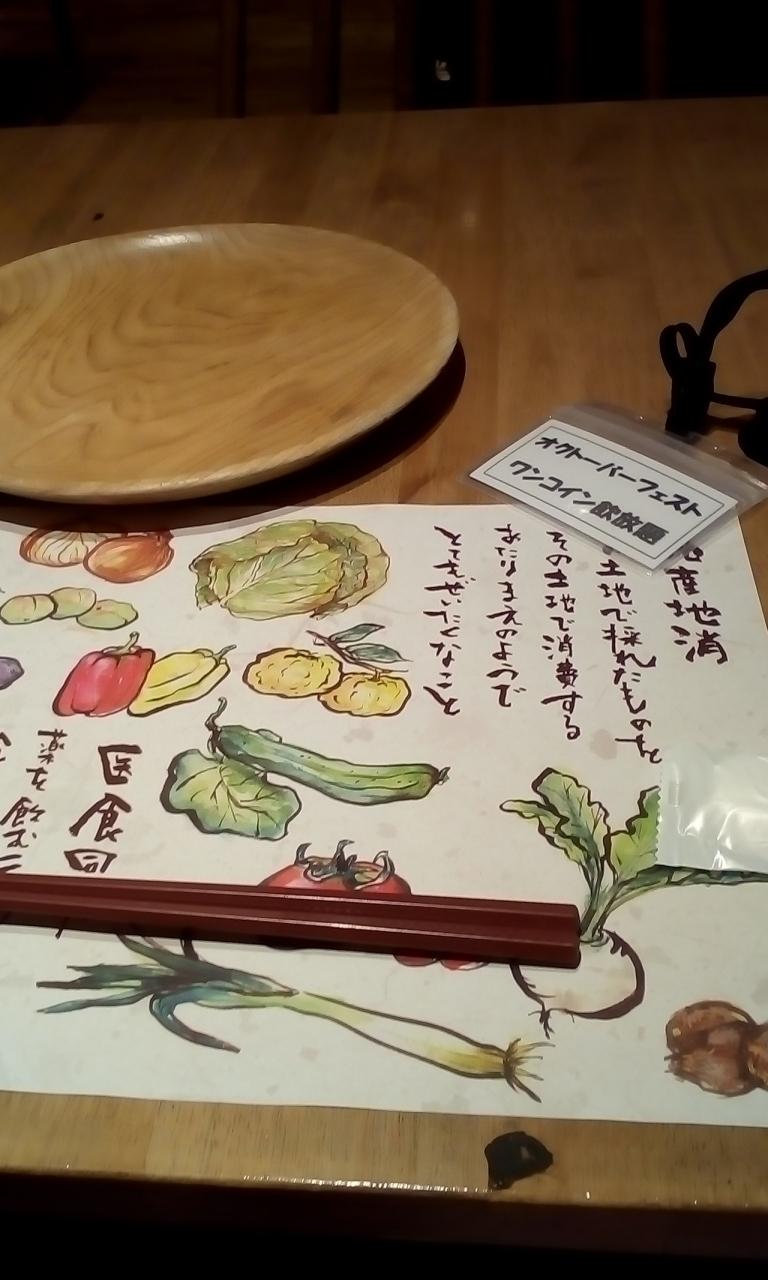 オクトーバーフェスト
ワンコイン飲放題
産地消
土地で採れたものを
その土地で消費する
あたりまえのようで
とてもぜいたくなこと
医食同
薬を飲む